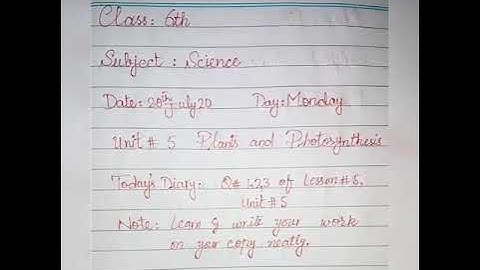 Class: 6th
Subject : Science
Date: 20th July 20 Day: Monday
Unit # 5 Plants and Photosynthesis
Today's Diary: Q# 1,2,3 of Lesson # 5,
Unit # 5
Note: Learn & write your work
on your copy neatly.